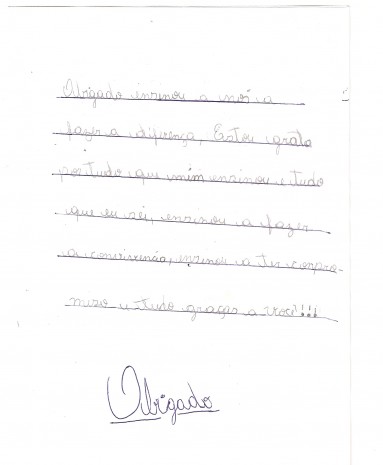 Obrigado ensinou a nós a
fazer a diferença, Estou grata
por tudo que mim ensinou e tudo
que eu sei, ensinou a fazer
a convivencia, ensinou a ter compro-
misso e tudo graças a você!!!
Obrigado